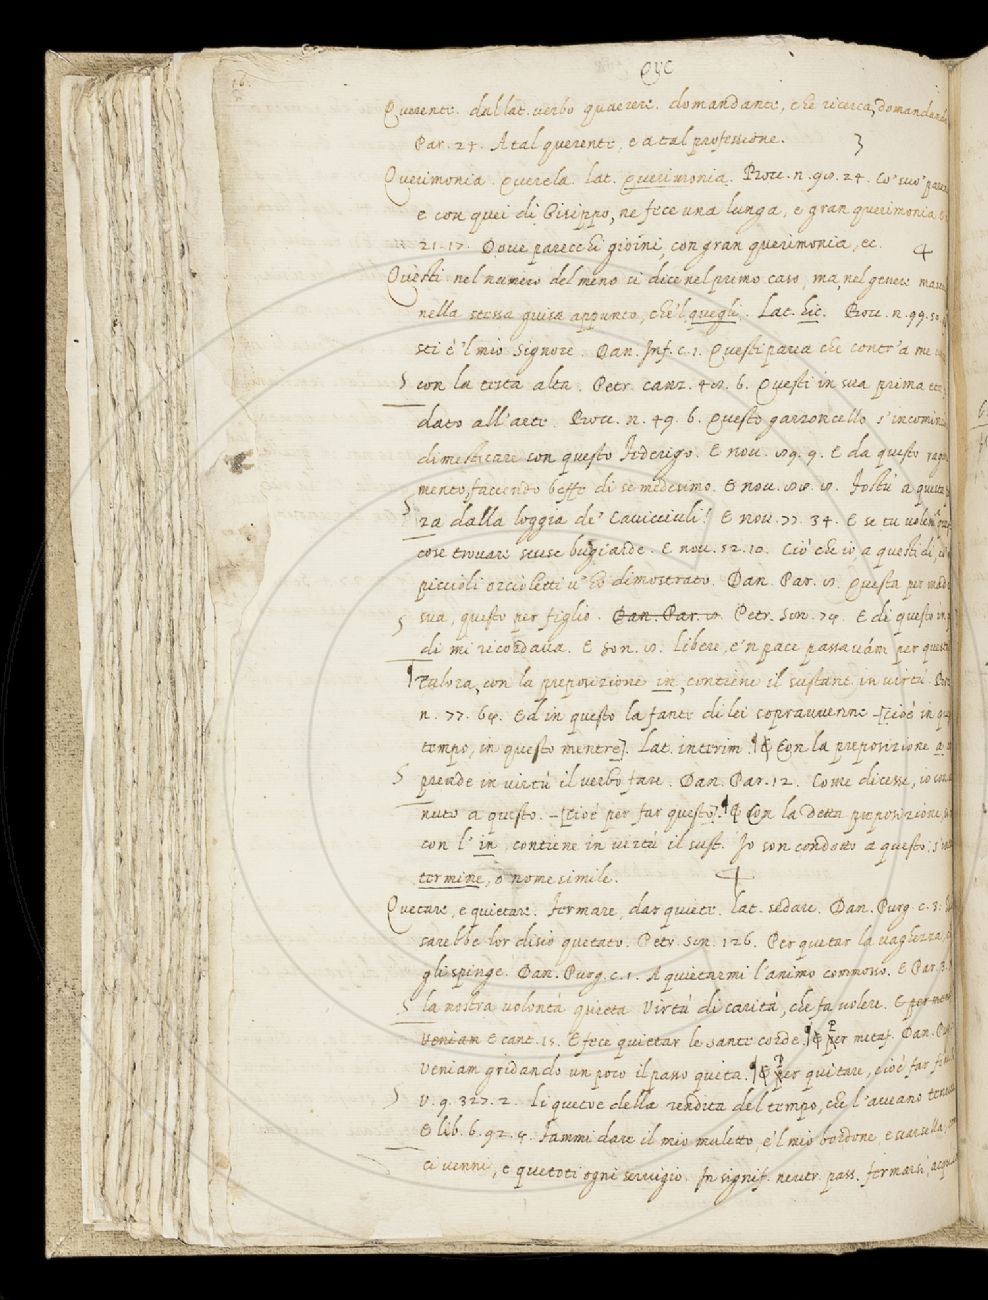 QVE
Querente. dal lat. verbo quaerere. domandante, che ricerca, domandan
Par. 24. A tal querente, e a tal professione.
Querimonia. Querela. Lat. Querimonia. Bocc. n. 98. 24. Co' suo'
e con quei di Gisippo, ne fece una lunga, e gran querimonia
21. 17. Dove parecchi giorni, con gran querimonia, ec.
Questi nel numero del meno si dice nel primo caso, ma, nel genere
nella stessa guisa appunto, che'l quegli. Lat. hic. Bocc. n. 99. 50.
sti è 'l mio Signore. Dan. Inf. c. 1. Questi parea che contr'a me
con la testa alta. Petr. canz. 48. 6. Questi in sua prima
dato all'arte. Bocc. n. 49. 6. Questo garzoncello s'incomin
dimesticare con questo Federigo. E nov. 89. 9. E da questo
mento, facendo beffe di se medesimo. E nov. 88. 8. Fostù a questa
za dalla loggia de' Cavicciuli! E nov. 77. 34. E se tu
cose trovare scuse bugiarde. E nov. 52. 10. Ciò che io a questi dì, co
piccioli orcioletti v'ho dimostrato. Dan. Par. 8. Questa per
sua, questo per figlio. Dan. Par. 8 Petr. Son. E di questo in
di mi ricordava. E son. 8. Libere, e 'n pace passavám per
Talora, con la preposizione in, contiene il sustant. in virtù.
n. 77. 68. Ed in questo la fante di lei sopravvenne -[cioè in
tempo, in questo mentre]. Lat. interim. Con la preposizione a
prende in virtù il verbo fare. Dan. Par. 12. Come dicesse, io
nuto a questo. -[cioè per far questo]. Con la detta preposizione,
con l' in, contiene in virtù il sust. Io son condotto a questo;
termine, o nome simile.
Quetare, e quietare. Fermare, dar quiete. Lat. sedare. Dan. Purg. c. 3.
sarebbe lor disio quetato. Petr. Son. 126. Per quetar la vaghezza,
gli spinge. Dan. Purg. c. 1. A quietarmi l'animo commosso. E Par. 3.
la nostra volontà quieta Virtù di carità, che fa volere. E per
Veniam E cant. 15. E fece quietar le sante corde. Per metaf. Dan.
Veniam gridando un poco il passo queta. Per quitare, cioè far
V. 9. 327. 2. Li quetoe della rendita del tempo, che l'aveano
E lib. 6. 92. Fammi dare il mio muletto, e 'l mio bordone, e scarsella,
ci venni, e quetoti ogni servigio. In signif. neutr. pass. fermarsi,